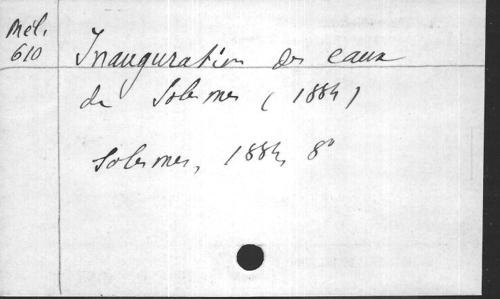 Mél.
610
Inauguration des eaux
de Solesmes (1884)
Solesmes, 1884, 8°